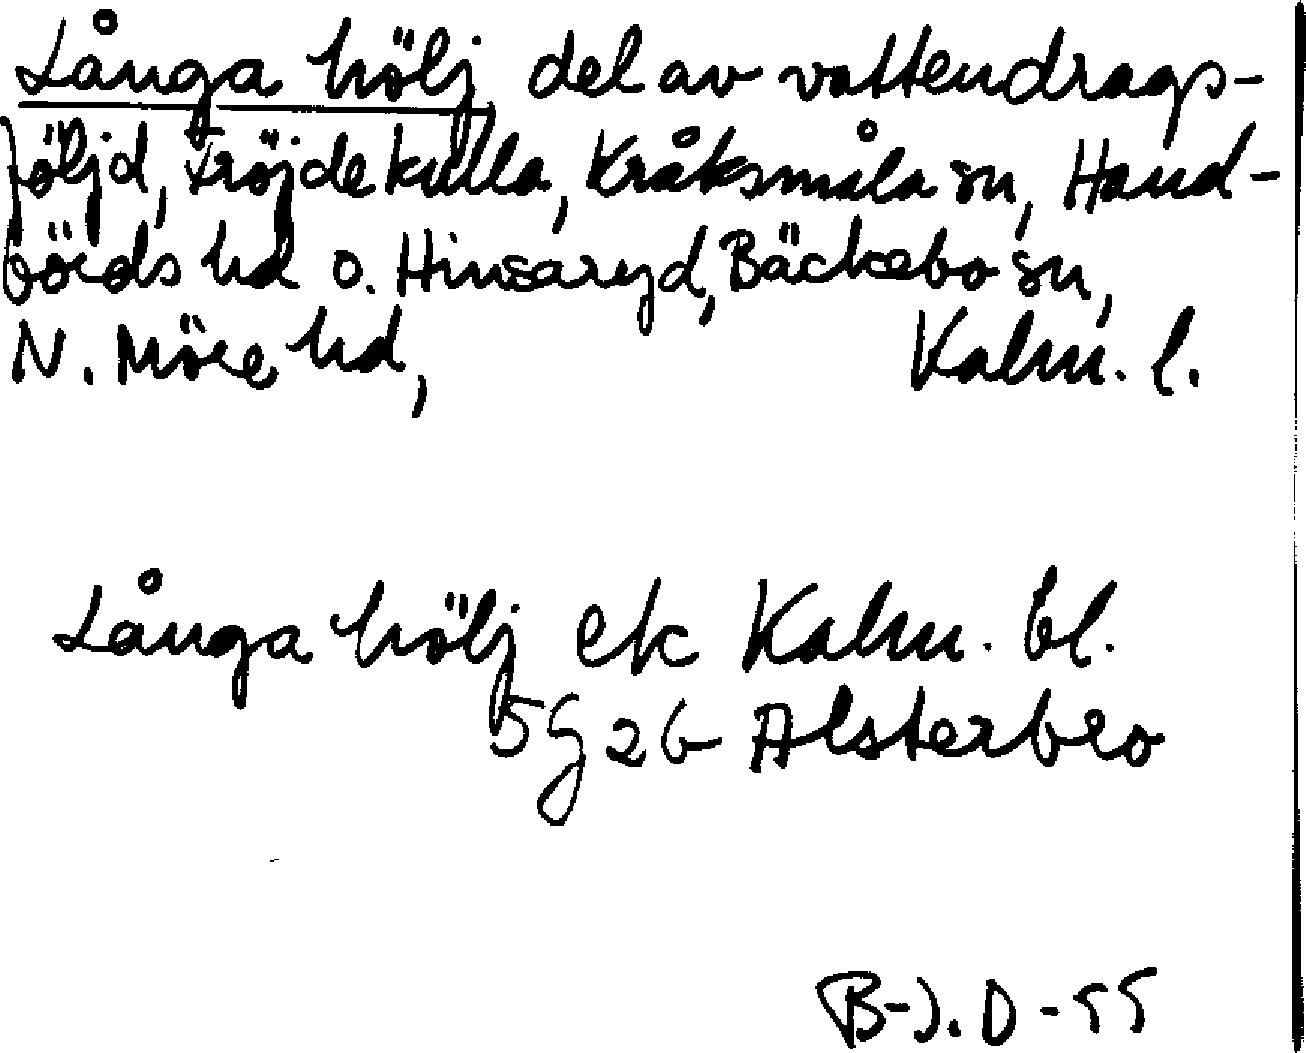 Långa hölj del av vattendrags-
följd, Fröjdekulla, Kråksmåla sn, Hand-
börds hd o. Hinsaryd, Bäckebo sn,
N. Möre hd, Kalm. l.
Långa hölj ek Kalm. bl.
5g 2b Alsterbro
B-J. D -55